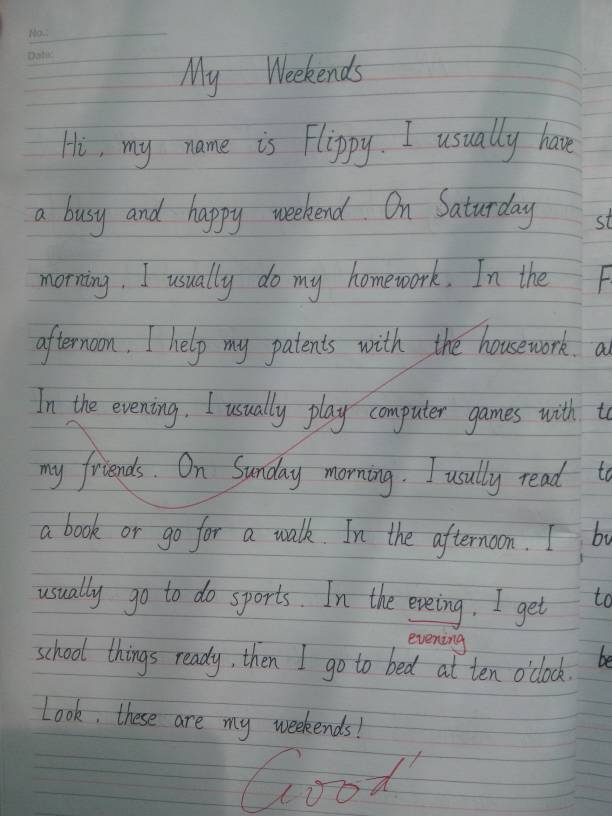 No.:
Date:
My Weekends
Hi, my name is Flippy. I usually have
a busy and happy weekend. On Saturday
morning, I usually do my homework. In the
afternoon, I help my patents with the housework.
In the evening, I usually play computer games with
my friends. On Sunday morning, I usully read
a book or go for a walk. In the afternoon, I
usually go to do sports. In the eveing, I get
evening
school things ready, then I go to bed at ten o'clock.
Look, these are my weekends!
Good!
st
F
al
to
to
bu
to
be